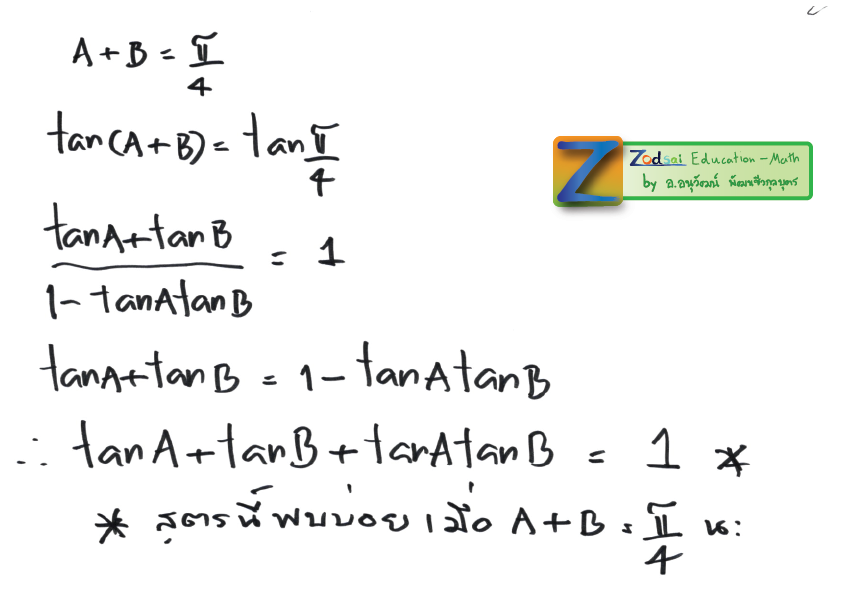 A + B = π/4
tan(A+B) = tan π/4
Zodsai Education - Math
by อ.อนุวัฒน์
(tanA + tanB)/(1 - tanAtanB) = 1
tanA + tanB = 1 - tanAtanB
∴ tanA + tanB + tanAtanB = 1 *
* สูตรนี้พบบ่อย เมื่อ A + B = π/4 นะ